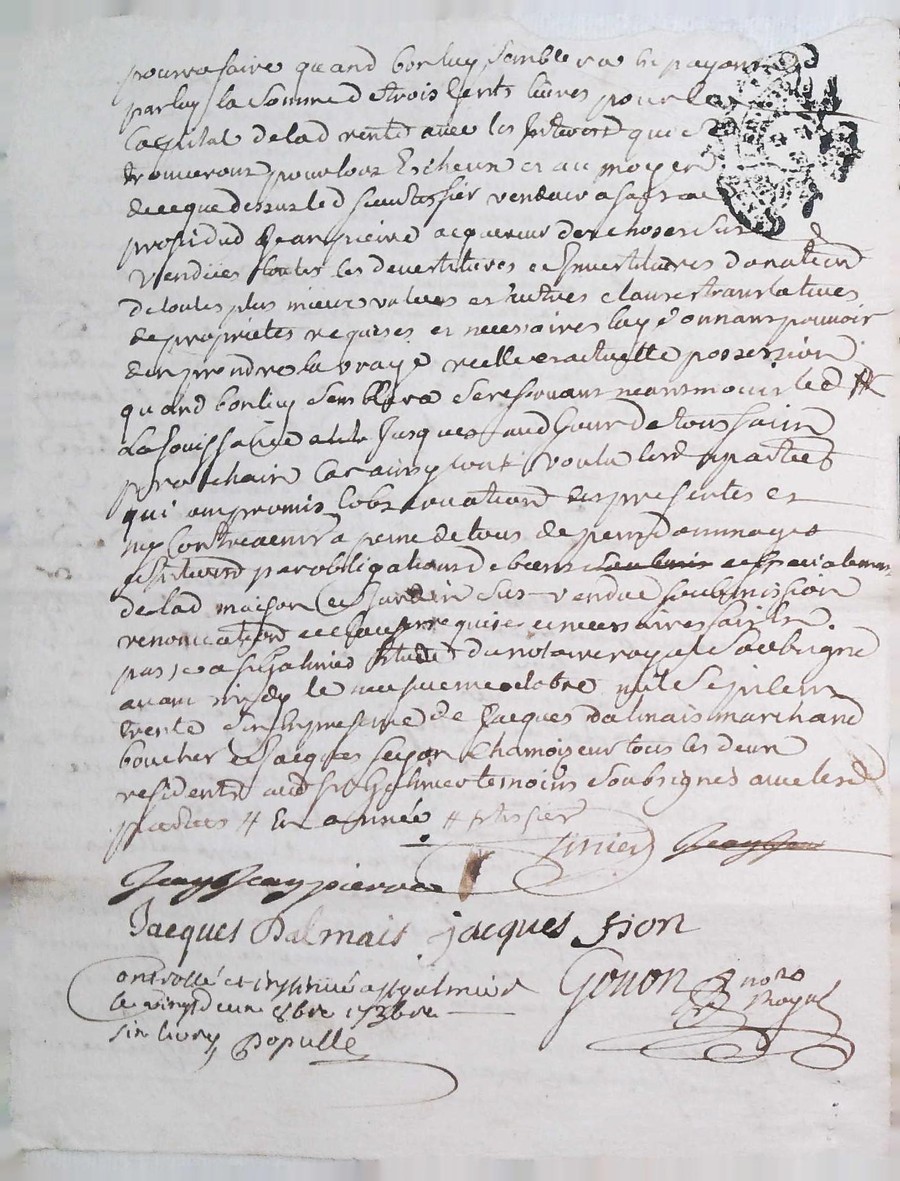 pourra faire quand bon luy semblera en payant
par luy la somme de trois cents livres pour le
capital de lad rente avec les interest qui se
trouveront pour lors escheux et au moyen
de ce que dessus led sieur tissier vendeur a
proffid dud Jean pierre acquereur des choses sus
vendües toutes les devestitures et Investitures donation
de toutes plus mieux values et autres clauses translatives
de proprietés requises et necessaires luy donnant pouvoir
d'en prendre la vraye reelle et actuelle possession
quand bon luy semblera se reservant neanmoins led
la jouissance Jusques aud Jour de toussaint
prochain Car ainsy l'ont voulu lesd parties
qui ont promis l'observation des presentes et
ny Contrevenir a peine de tous depens dommages
et interest par obbligation de biens et specialement
de lad maison et Jardin sus vendue soubmission
renonciation et clauses requises et necessaires fait et
passé a st Galmier Etude du notaire royal soubsigné
avant midy le neufvieme octobre mil sept cent
trente six en presence de Jacques dalmais marchand
boucher et Jacques sejon Chamoiseur tous les deux
residents aud st Galmier temoins soubsignés avec lesd
parties // En année // tissier
Jean pierre
Jacques Dalmais Jacques sion
Gonon nore Royal
Controllé et insinué a st galmier
le vingt deux 8bre 1736
six livres
Populle